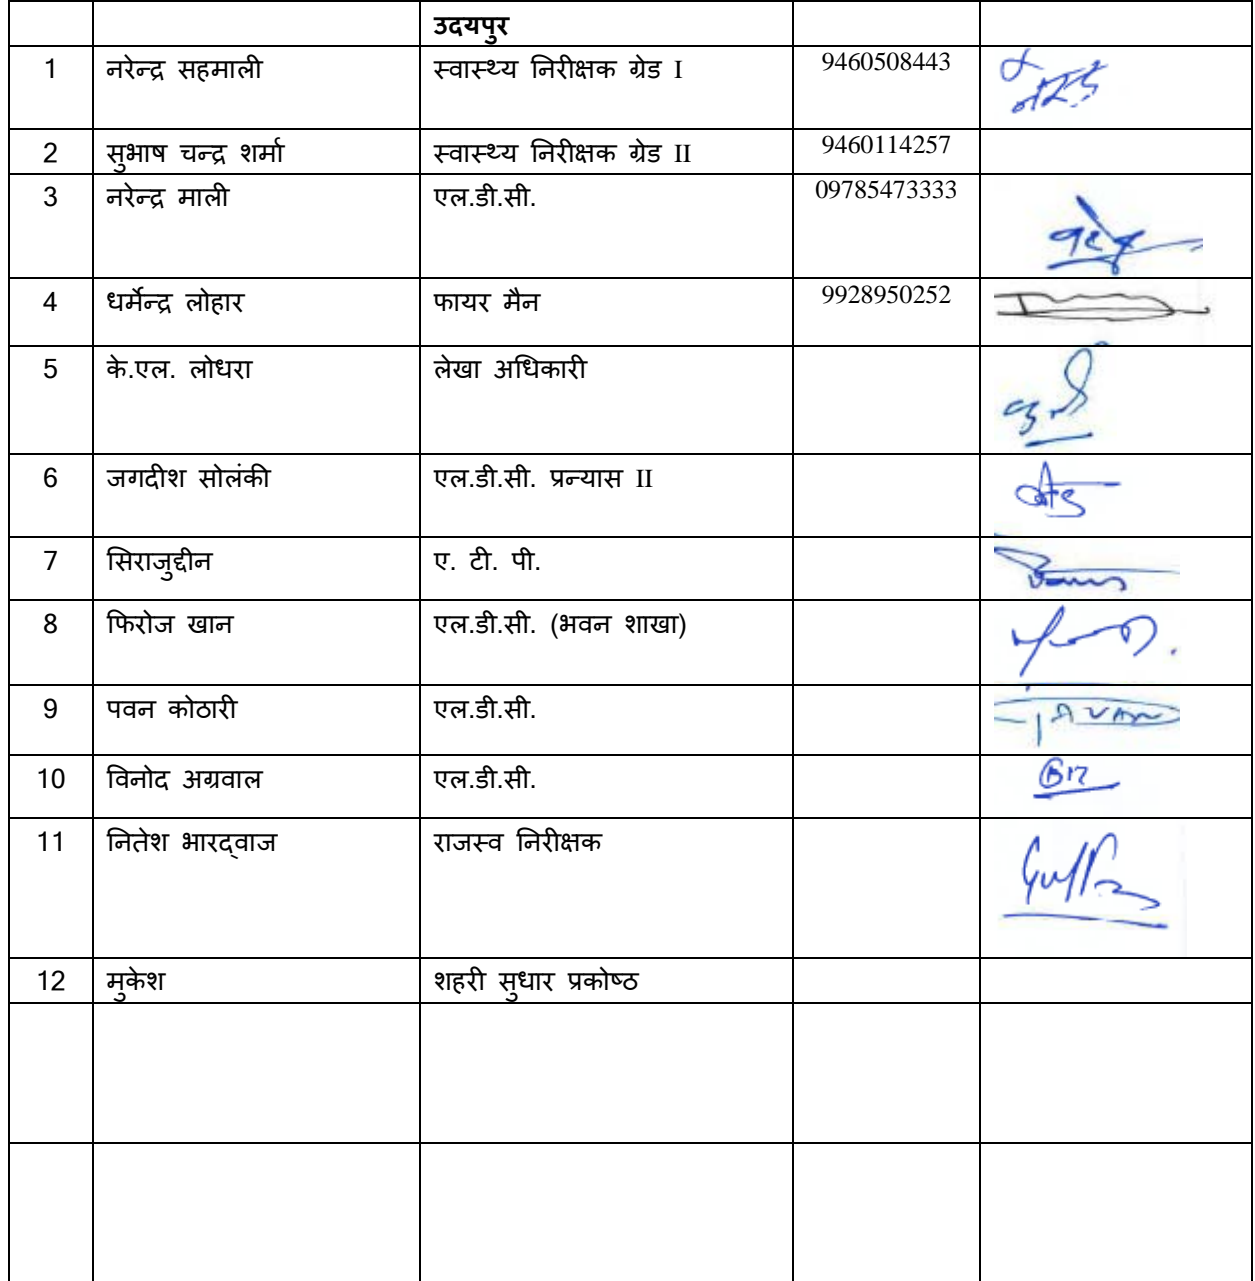 उदयपुर
1 नरेन्द्र सहमाली स्वास्थ्य निरीक्षक ग्रेड I 9460508443
2 सुभाष चन्द्र शर्मा स्वास्थ्य निरीक्षक ग्रेड II 9460114257
3 नरेन्द्र माली एल.डी.सी. 09785473333
4 धर्मेन्द्र लोहार फायर मैन 9928950252
5 के.एल. लोधरा लेखा अधिकारी
6 जगदीश सोलंकी एल.डी.सी. प्रन्यास II
7 सिराजुद्दीन ए. टी. पी.
8 फिरोज खान एल.डी.सी. (भवन शाखा)
9 पवन कोठारी एल.डी.सी.
10 विनोद अग्रवाल एल.डी.सी.
11 नितेश भारद्वाज राजस्व निरीक्षक
12 मुकेश शहरी सुधार प्रकोष्ठ